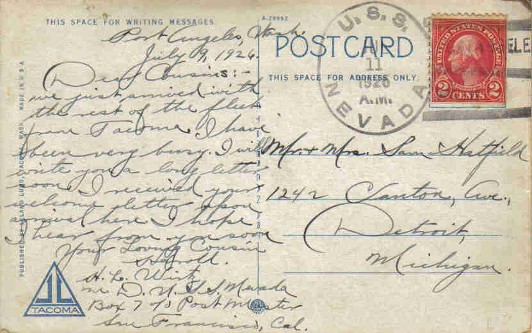 THIS SPACE FOR WRITING MESSAGES
A-28992
POST CARD
THIS SPACE FOR ADDRESS ONLY.
U.S.S. NEVADA
JUL
11
1926
A.M.
UNITED STATES POSTAGE
2 CENTS 2
Port Angeles, Wash.
July 9, 1926.
Dear Cousins:-
we just arrived with
the rest of the fleet
from Tacoma. I have
been very busy. I will
write you a long letter
soon. I received your
welcome letter upon
arrival here. I hope I
hear from you soon
Your Loving Cousin
Harold.
H. L. Wirtz
U.S.S. Nevada
Box 7 % Post Master
San Francisco, Cal.
Mr. & Mrs. Sam Hatfield
1242 Canton, Ave.,
Detroit,
Michigan.
TACOMA
MADE IN U.S.A.